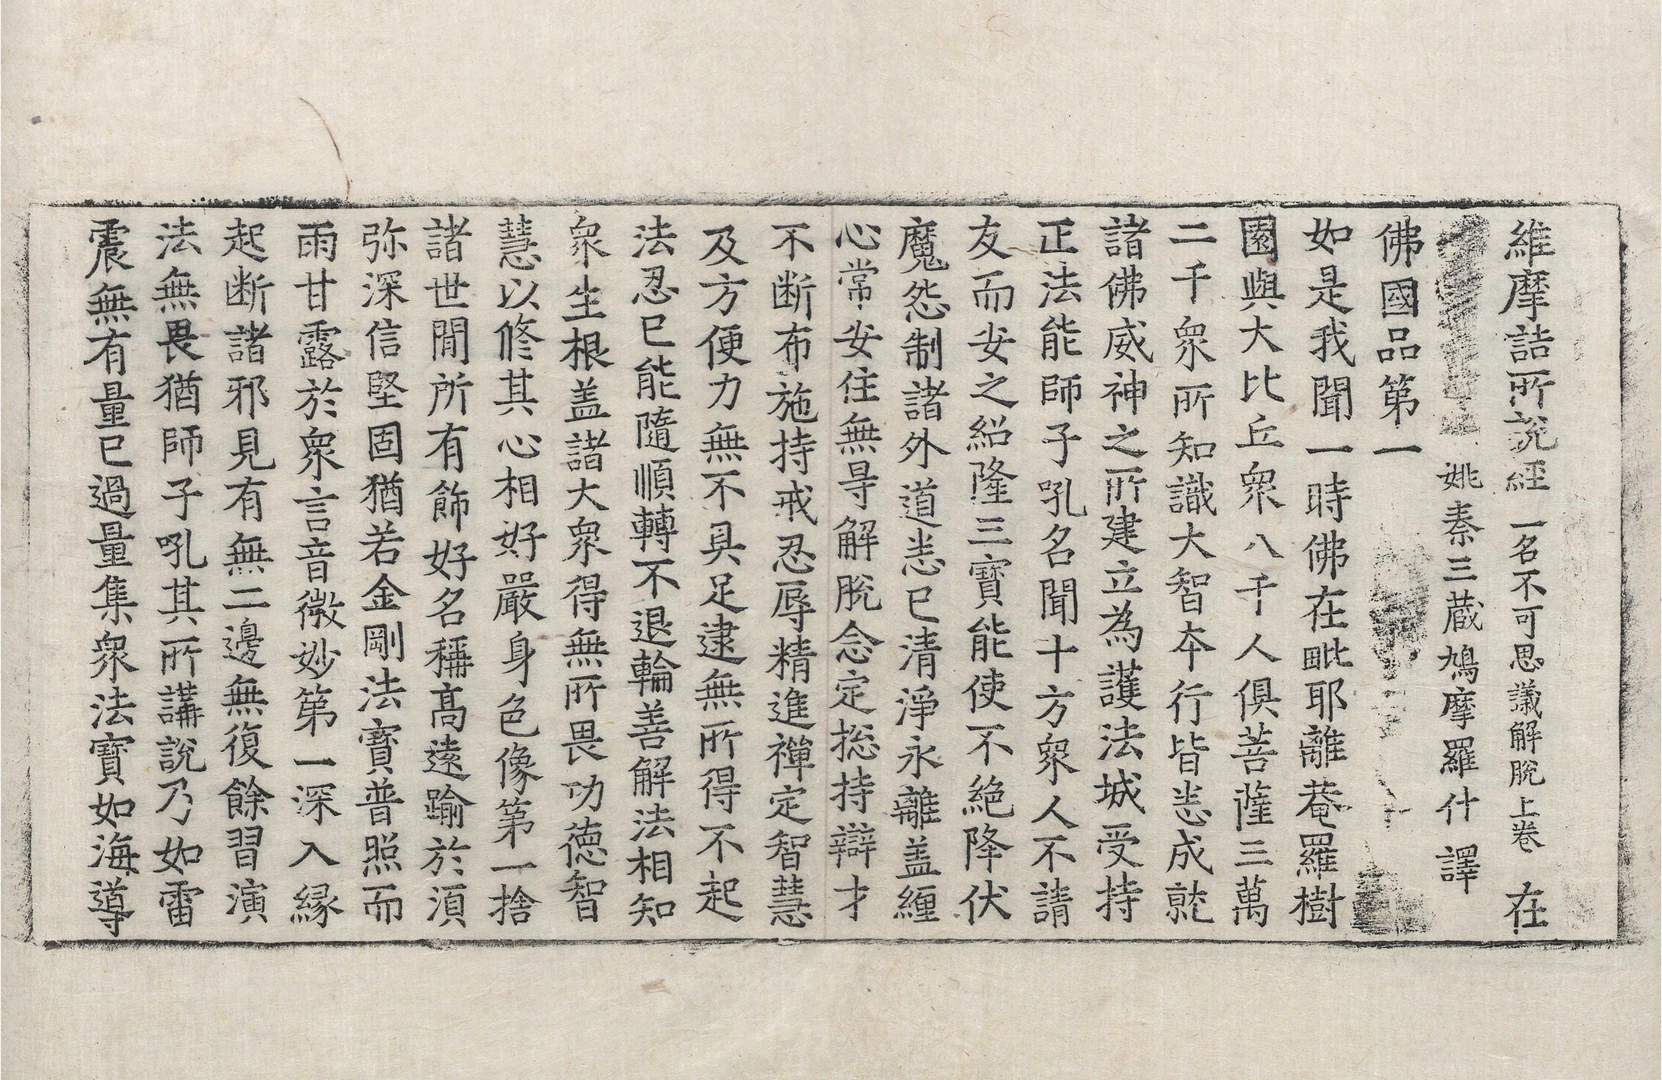 維摩詰所說經一名不可思議解脫上卷 在
姚秦三藏鳩摩羅什 譯
佛國品第一
如是我聞一時佛在毗耶離菴羅樹
園與大比丘衆八千人俱菩薩三萬
二千衆所知識大智本行皆悉成就
諸佛威神之所建立為護法城受持
正法能師子吼名聞十方衆人不請
友而安之紹隆三寶能使不絕降伏
魔怨制諸外道悉已清淨永離盖纏
心常安住無㝵解脫念定揔持辯才
不断布施持戒忍辱精進禪定智慧
及方便力無不具足逮無所得不起
法忍已能隨順轉不退輪善解法相知
衆生根盖諸大衆得無所畏功德智
慧以修其心相好嚴身色像第一捨
諸世間所有飾好名稱高遠踰於須
弥深信堅固猶若金剛法寶普照而
雨甘露於衆言音微妙第一深入緣
起断諸邪見有無二邊無復餘習演
法無畏猶師子吼其所講說乃如雷
震無有量已過量集衆法寶如海導